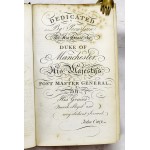 DEDICATED
By Permission
To His Grace the
DUKE OF
Manchester,
His Majesty's
POST MASTER GENERAL,
BY
His Grace's
much obliged and
very obedient servant
John Cary.